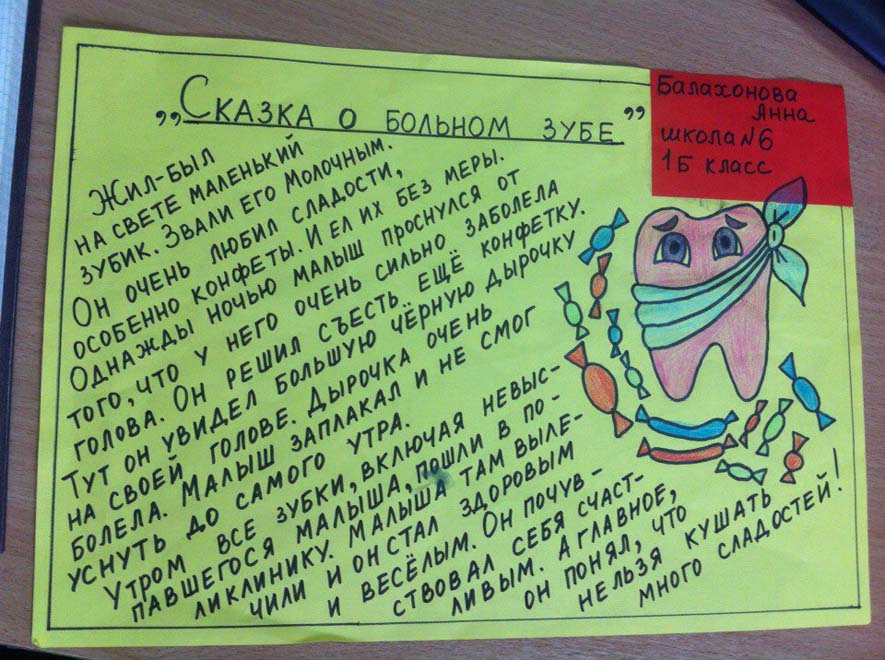 „Сказка о больном зубе”
Балахонова
Анна
школа №6
1Б класс
Жил-был
на свете маленький
зубик. Звали его Молочным.
Он очень любил сладости,
особенно конфеты. И ел их без меры.
Однажды ночью малыш проснулся от
того, что у него очень сильно заболела
голова. Он решил съесть ещё конфетку.
Тут он увидел большую чёрную дырочку
на своей голове. Дырочка очень
болела. Малыш заплакал и не смог
уснуть до самого утра.
Утром все зубки, включая невыс-
павшегося малыша, пошли в по-
ликлинику. Малыша там выле-
чили и он стал здоровым
и весёлым. Он почув-
ствовал себя счаст-
ливым. А главное,
он понял, что
нельзя кушать
много сладостей!